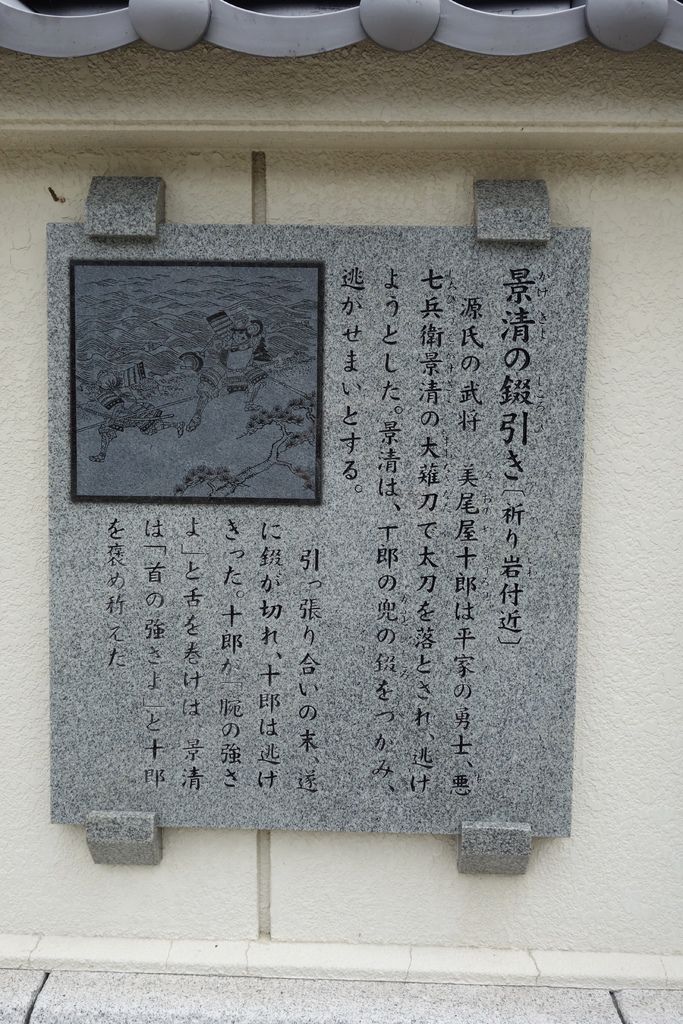 景清の錣引き〔祈り岩付近〕
源氏の武将 美尾屋十郎は平家の勇士、悪
七兵衛景清の大薙刀で太刀を落とされ、逃げ
ようとした。景清は、十郎の兜の錣をつかみ、
逃がせまいとする。
引っ張り合いの末、遂
に錣が切れ、十郎は逃げ
きった。十郎が「腕の強さ
よ」と舌を巻けば 景清
は「首の強さよ」と十郎
を褒め称えた